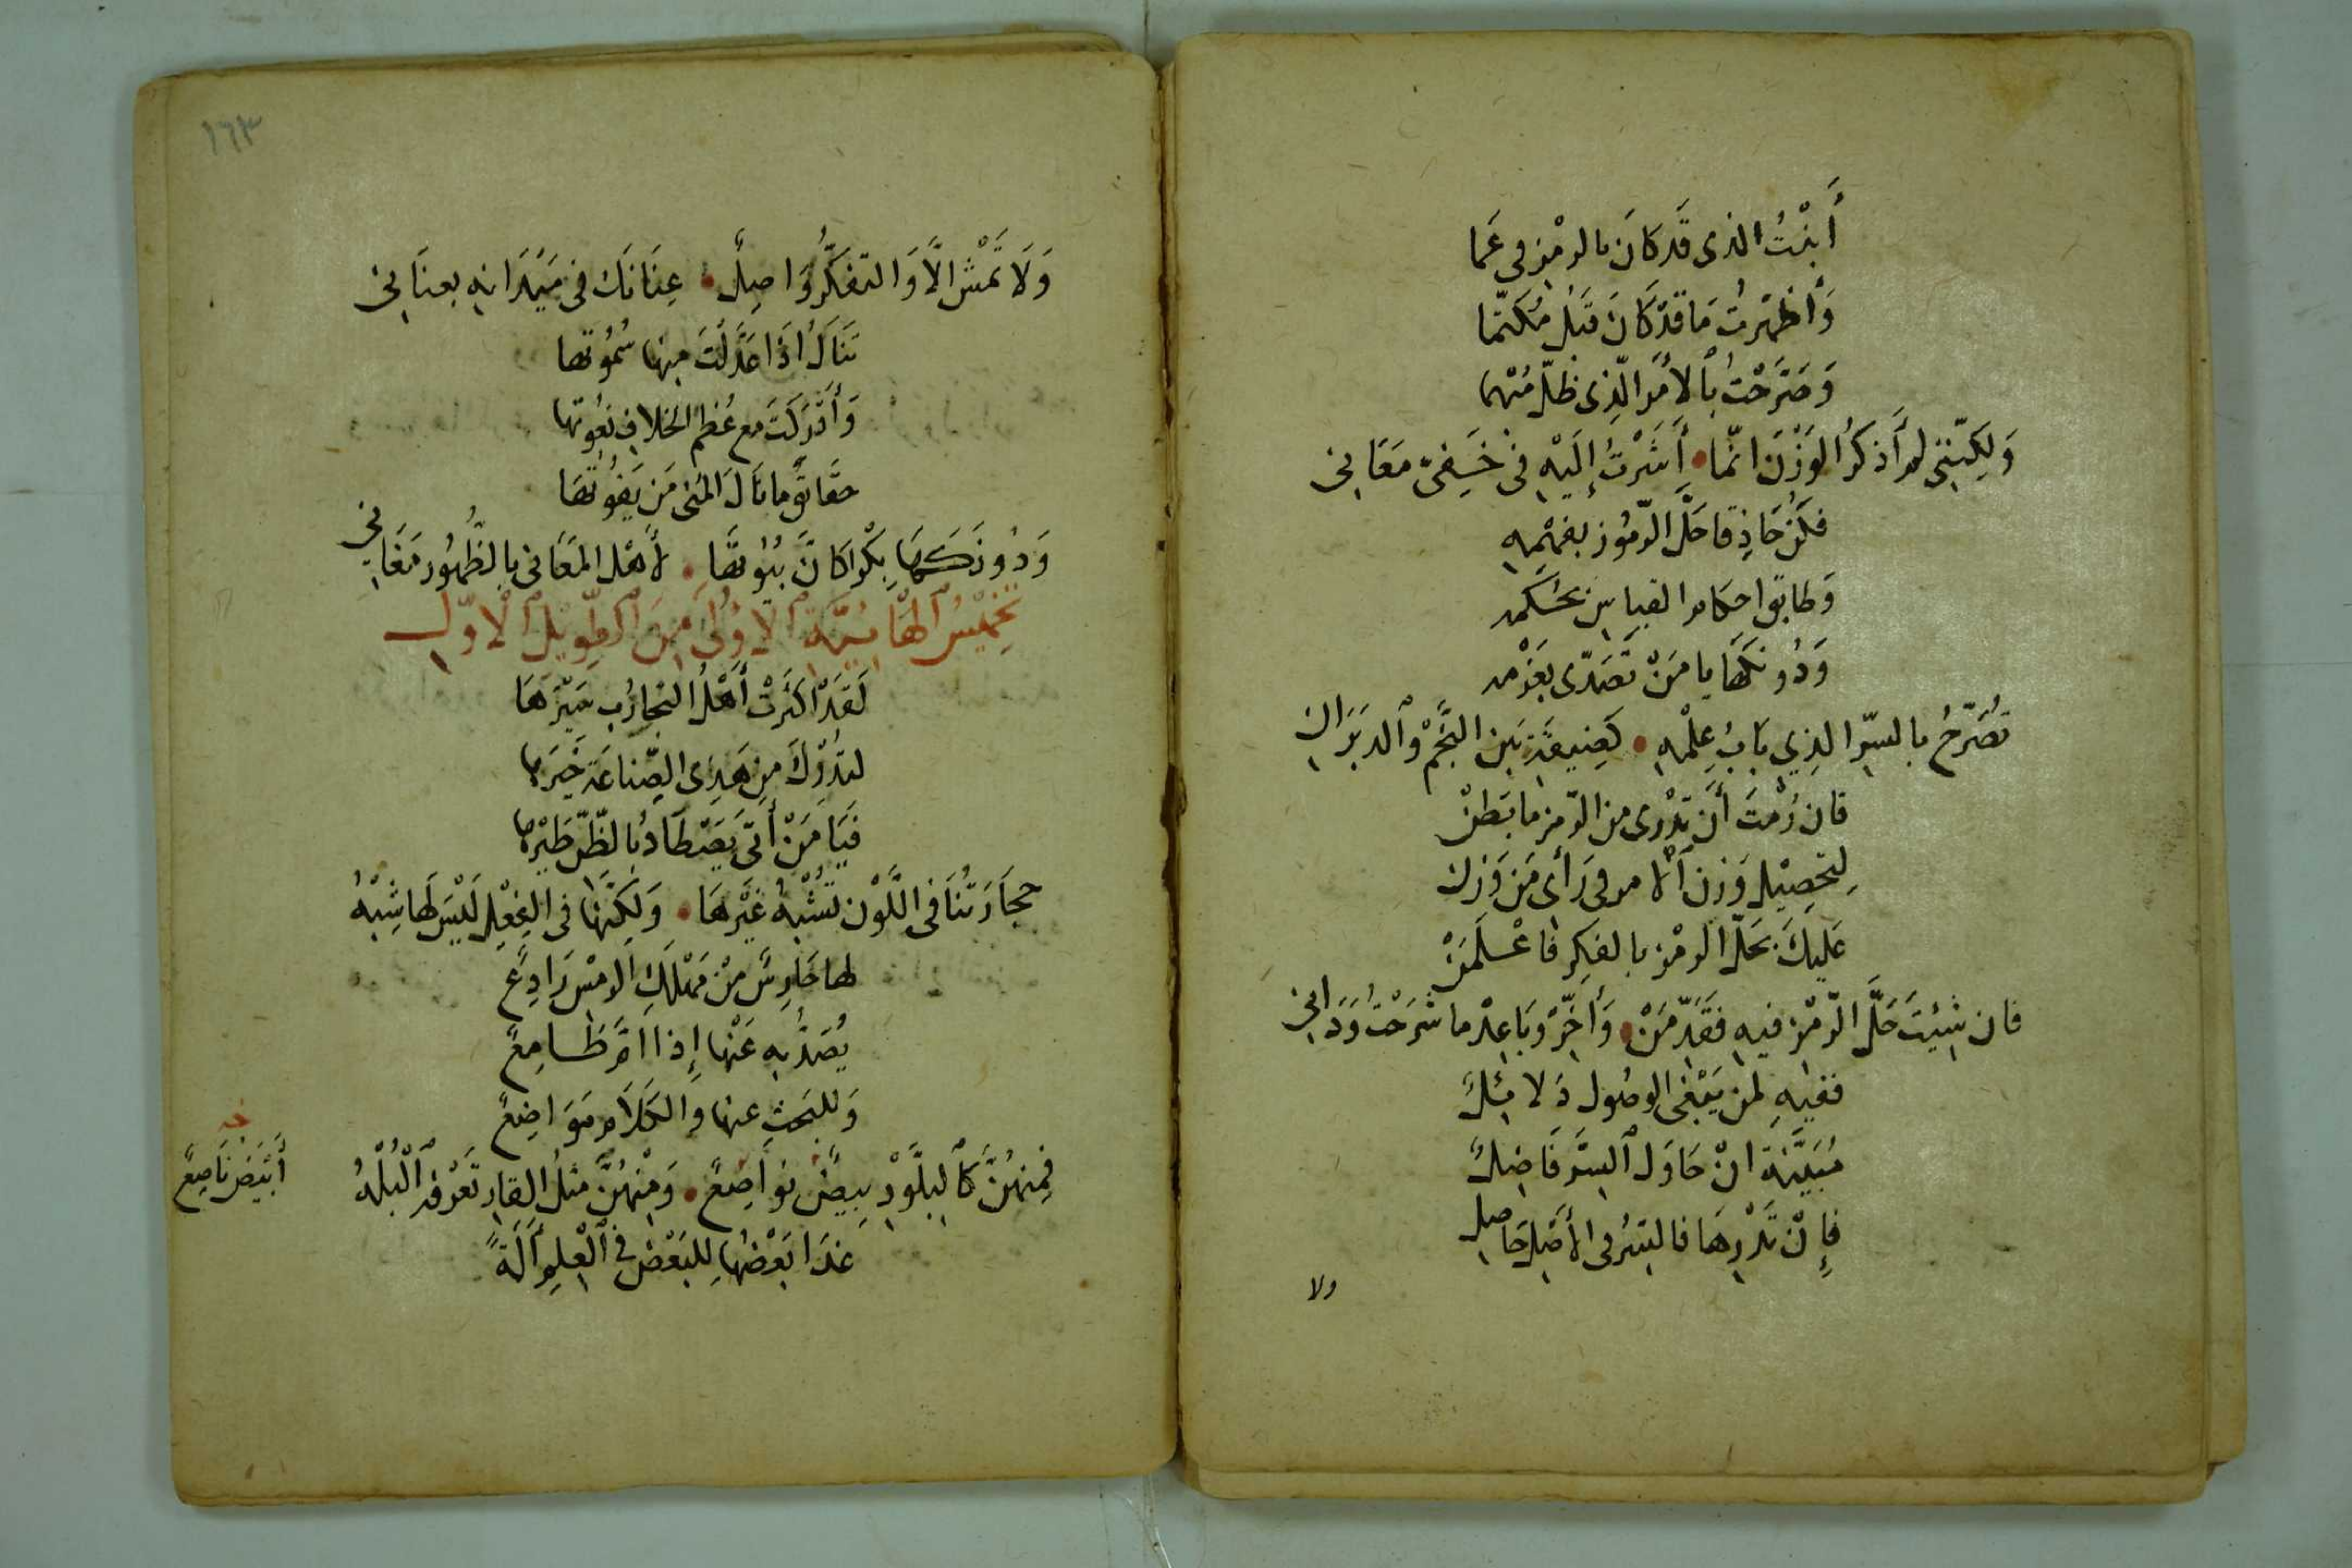 أَبَنْتُ الذى قَد كَانَ بالرمْزِ فى عَمَا
وَأَظْهَرتُ مَا قَدْ كَانَ قَبْلُ مُكَتَّما
وَصَرَّحْتُ بِٱلأَمْرِ الَّذِى ظَلَّ مُبْهما
وَلكِنَّنِى لم أَذكُرُ الوَزْنَ انَّمَا • أَشَرْتُ إِلَيْهِ فى خَفِىّ مَعَانِى
فكُنْ حَاذِقا حَلَّ الرّمُوز بفهْمِهِ
وَطابق احكام القياس بحُكمه
وَدُونكَهَا يا مَنْ تَصَدّى بعَزْمه
تُصَرّحُ بالسِرّ الذِي بَابُ عِلْمِهِ • كَضِيقَةِ بَين النَّجْمْ وٱلدبَرَانِ
فان رُمْتَ أَن تَدْرى من الرّمز ما بَطَنْ
لِتَحصِيْلِ وَزن ٱلام فى رَأى مَن وَزن
عَلَيكَ بحَلّ الرمْز بالفِكرِ فاعْلَمَنْ
فان شِئتَ حَلَّ الرّمْز فيه فقَدِّمَنْ • وَأَخِّرْ وَبَاعِدْ ما شَرَحْتُ وَدَانِى
ففيهِ لمن يَبْغى الوصُول دَلائِلٌ
مُبَيَّنَة انْ حَاوَل ٱلسِّرَّ فَاضِلٌ
فإِنْ تَدْرِهَا فالسِّرُ فى الأَصْلِ حَاصِل
ولا
١٦٣
وَلَا تَمْشِ الَّا وَالتفَكُّرُ وَاصِلٌ • عِنَانَكَ فى مَيْدَانِهِ بعنَانِى
تَنَالُ اذَا عَدَّلْتَ مِنها سُمُوتها
وَأَدْرَكتَ مع عُظم الخلافِ نعُوتها
حقَائقٌ مانَالَ المُنى مَن يَفُوتُهَا
وَدُونَكَهَا بِكْرا كانَّ بيُوتَهَا • لأَهْل المَعَانى بالظُّهُور مَغَانِى
تَخمْيسُ ٱلهَائِيَّة ٱلاوُلَى مِنَ ٱلطّوِيْل ٱلاوّل
لَقَدْ اكثَرَتْ أَهْلُ التجارُب مَيْزَهَا
لتُدْرك مِن هَذِى الصّناعَة خَيرَها
فيَا مَنْ أَتى يَصْطَادُ بالظّنّ طَيْرها
حجَارَتُنَا فى اللَّوْن تُشْبهُ غَيْرهَا • وَلكِنَّهَا فى الفِعْلِ لَيْسَ لَها شِبْهُ
لها حَارِسٌ مِنْ مَهْلَكِ الرمْس رَادِعٌ
يُصَدُّ بِه عَنْها إِذا امَّ طَامِعٌ
وَللبَحثِ عنها وَالكَلَام مَوَاضِعٌ
فمِنهُنَّ كٱلبلَّوْر بِيضٌ نوَاصِعٌ • وَمْنهُنَّ مثلُ القارِ تَعْرفُه ٱلْبُلْهُ
خـ أَبْيَضُ نَاصِعٌ
غدَا بَعْضُها لِلبَعْض فى ٱلْعِلمِ آلَةً